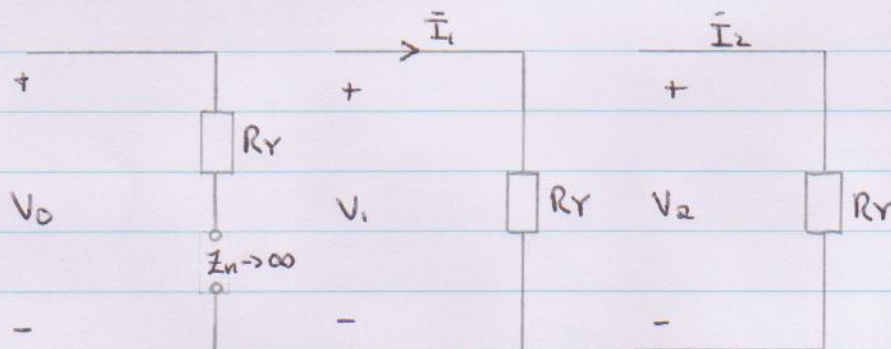 Ī₁ Ī₂
+ + +
RY
V₀ V₁ RY V₂ RY
Zn→∞
- - -